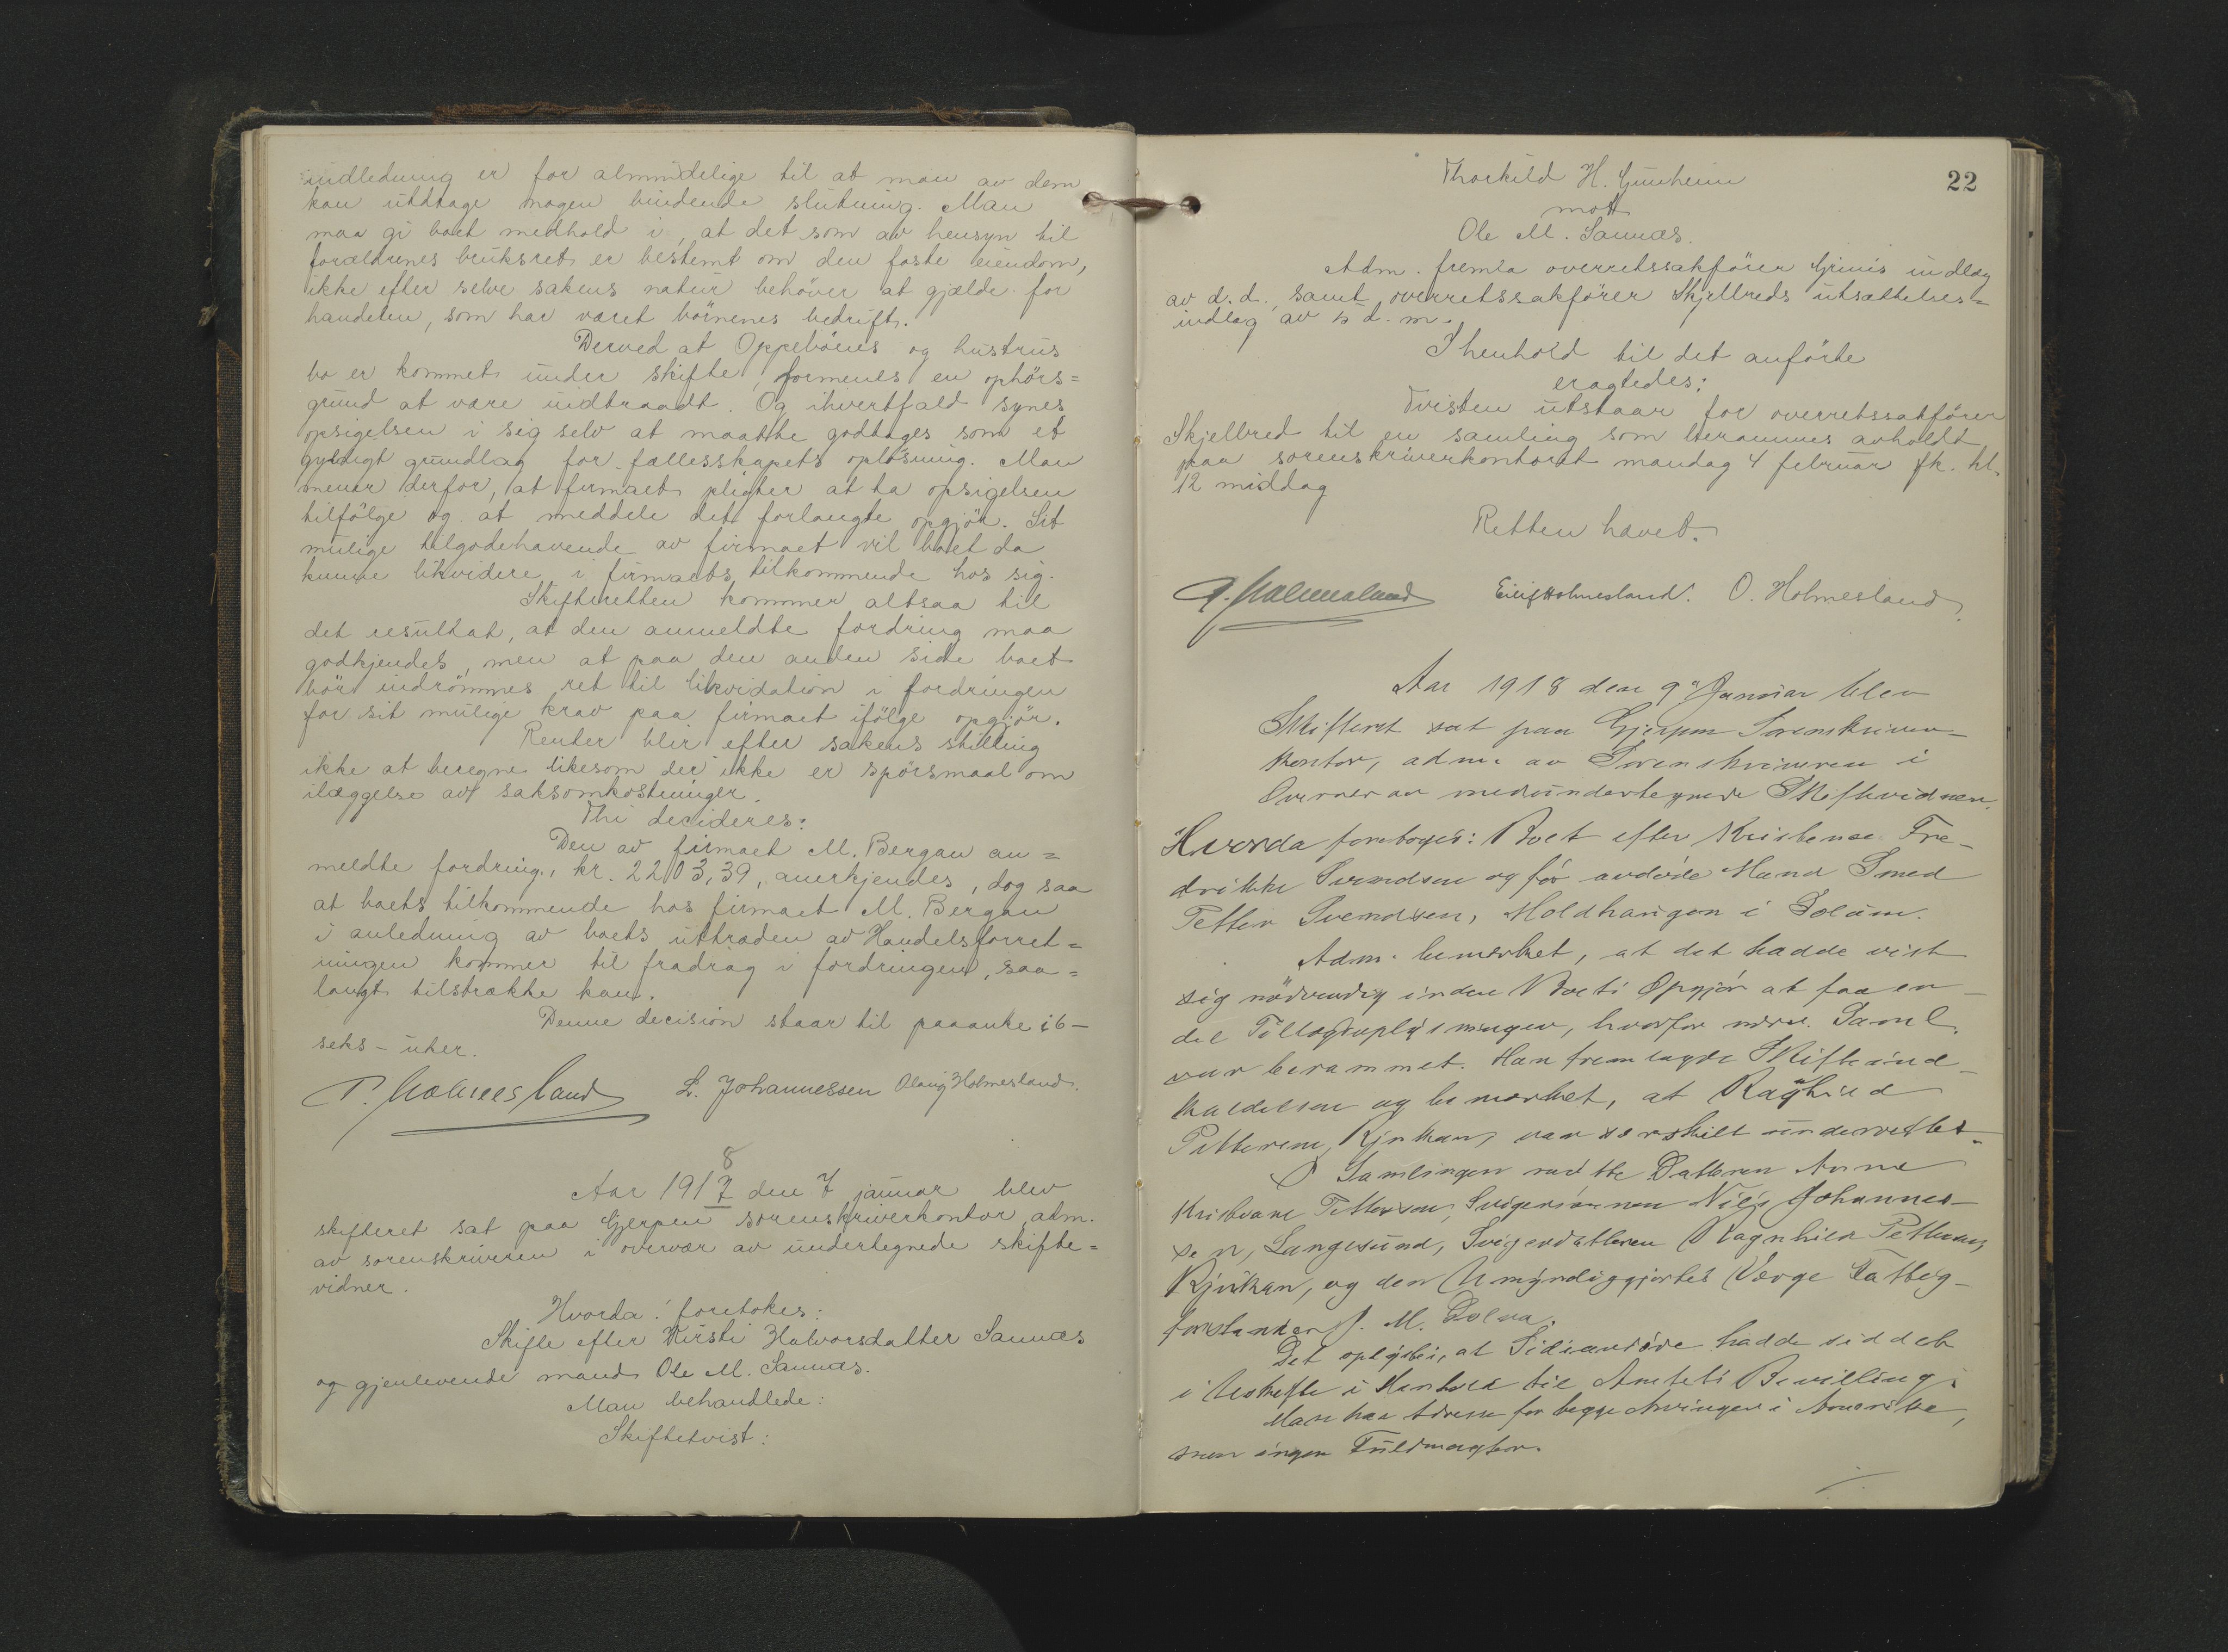 indledning er for almindelige til at man av dem
kan utdrage nogen bindende slutning. Man
maa gi boet medhold i, at det som av hensyn til
forældrenes bruksret er bestemt om den faste eiendom,
ikke efter selve sakens natur behöver at gjælde for
handelen, som har været börnenes bedrift.
Derved at Oppeböens og hustrus
bo er kommet under skifte, formenes en ophörs=
grund at være indtraadt. Og ihvertfald synes
opsigelsen i sig selv at maatte godtages som et
gyldigt grundlag for fællesskapets oplösning. Man
mener derfor, at firmaet pligter at ta opsigelsen
tilfölge og at meddele det forlangte opgjör. Sit
mulige tilgodehavende av firmaet vil boet da
kunne likvidere i firmaets tilkommende hos sig.
Skifteretten kommer altsaa til
det resultat, at den anmeldte fordring maa
godkjendes, men at paa den anden side boet
bör indrömmes ret til likvidation i fordringen
for sit mulige krav paa firmaet ifölge opgjör.
Renter blir efter sakens stilling
ikke at beregne likesom der ikke er spörsmaal om
ilæggelse av saksomkostninger.
Thi decideres:
Den av firmaet M. Bergan an=
meldte fordring, kr. 2203,39, anerkjendes, dog saa
at boets tilkommende hos firmaet M. Bergan
i anledning av boets uttræden av Handelsforret=
ningen kommer til fradrag i fordringen, saa=
langt tilstrække kan.
Denne decision staar til paaanke i 6-
seks- uker.
P. Holmesland L. Johannessen Olaug Holmesland.
8
Aar 1917 den 7 januar blev
skifteret sat paa Gjerpen sorenskriverkontor, adm.
av sorenskriveren i overvær av undertegnede skifte=
vidner.
Hvorda foretokes:
Skifte efter Kirsti Halvorsdatter Sannæs
og gjenlevende mand Ole M. Sannæs.
Man behandlede:
Skiftetvist:
22
Thorkild H. Gunheim
mot
Ole M. Sannæs.
Adm. fremla overretssakförer Grinis indlæg
av d.d., samt overretssakförer Skjelbreds utsættelses=
indlæg av d. m.
I henhold til det anförte
eragtedes:
Tvisten utstaar for overretssakförer
Skjelbred til en samling som berammes avholdt
paa sorenskriverkontoret mandag 4 februar fk. kl.
12 middag
Retten hævet.
P. Holmesland Eilif Holmesland. O. Holmesland.
Aar 1918 den 9' Januar blev
Skifteret sat paa Gjerpen Sorenskriver-
kontor, adm. av Sorenskriveren i
Overvær av medundertegnede Skiftevidner.
Hvorda foretoges: Boet efter Kristense Fre-
drikke Svendsen og för avdöde Mand Smed
Petter Svendsen, Moldhaugen i Solum.
Adm. bemerket, at det hadde vist
sig nödvendig inden Boets Opgjör at faa en
del Tillægsoplysninger, hvorfor nærv. Saml.
var berammet. Han fremlagde Skifteind-
kaldelsen og bemerket, at Ragnhild
Pettersen, Rjukan, var særskilt underrettet.
I Samlingen mötte Datteren Anna
Kristiane Pettersen, Svigersönnen Nils Johannes-
sen, Langesund, Svigerdatteren Ragnhild Pettersen,
Rjukan, og den Umyndiggjortes Verge Fattig-
forstander J. M. Solva.
Det oplystes, at Sidstavdöde hadde siddet
i Uskifte i Henhold til Amtets Bevilling.
Man har Adresse for begge Arvinger i Amerika,
men ingen Fuldmagter.